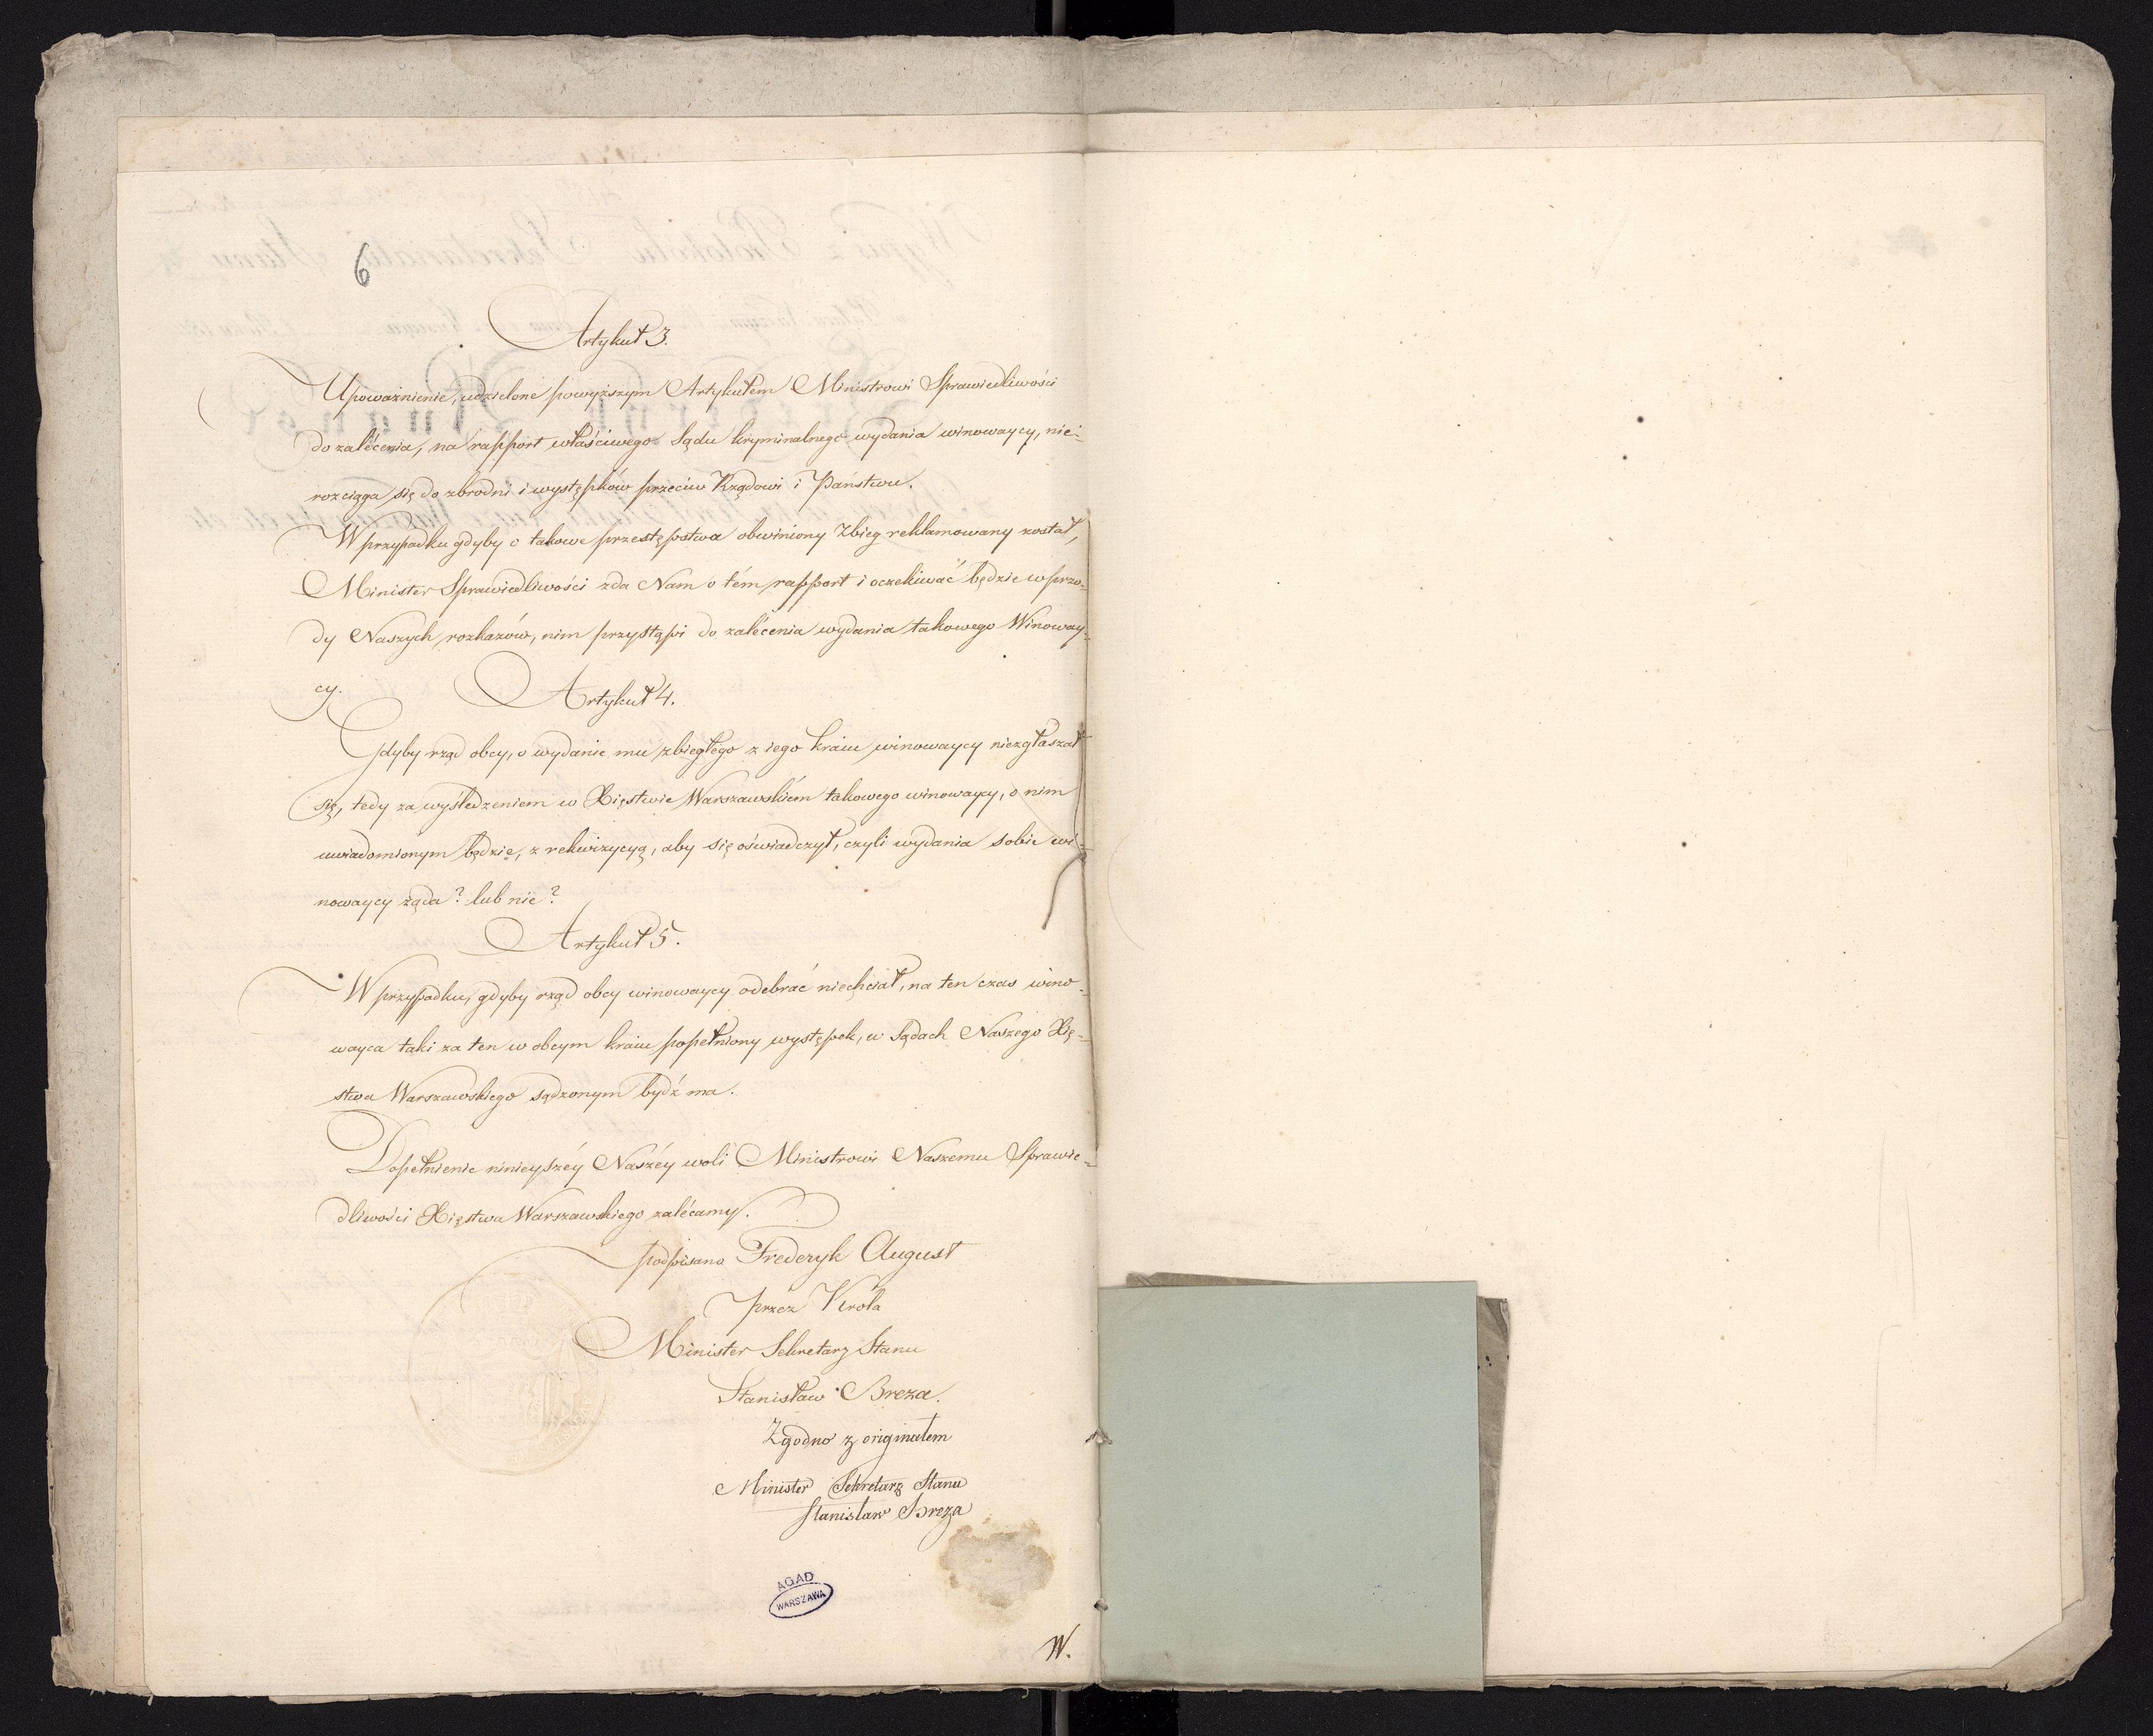 6
Artykuł 3.
Upoważnienie, udzielone powyższym Artykułem Ministrowi Sprawiedliwości
do zalécenia, na rapport właściwego Sądu kryminalnego wydania winowaycy, nie-
rozciąga się do zbrodni i występków przeciw Rządowi i Państwu.
W przypadku gdyby o takowe przestępstwa obwiniony Zbieg reklamowany został,
Minister Sprawiedliwości zda Nam o tém rapport i oczekiwać będzie wprzó-
dy Naszych rozkazów, nim przystąpi do zalécenia wydania takowego Winoway-
cy.
Artykuł 4.
Gdyby rząd obcy, o wydanie mu zbiegłego z iego kraiu winowaycy niezgłaszał
się, tedy za wyśledzeniem w Xięstwie Warszawskiém takowego winowaycy, o nim
uwiadomionym będzie, z rekwizycyą, aby się oświadczył, czyli wydania sobie wi-
nowaycy żąda? lub nie?
Artykuł 5.
W przypadku, gdyby rząd obcy winowaycy odebrać niechciał, na ten czas wino-
wayca taki za ten w obcym kraiu popełniony występek, w Sądach Naszego Xię-
stwa Warszawskiego sądzonym bydź ma.
Dopełnienie ninieyszéy Naszéy woli Ministrowi Naszemu Sprawie-
dliwości Xięstwa Warszawskiego zalécamy.
podpisano Frederyk August
przez Króla
Minister Sekretarz Stanu
Stanisław Breza.
Zgodno z originałem
Minister Sekretarz Stanu
Stanisław Breza
AGAD
WARSZAWA
W.